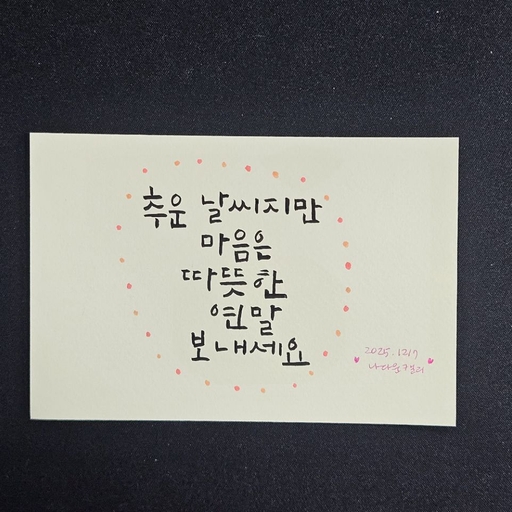 추운 날씨지만
마음은
따뜻한
연말
보내세요
2025.12.17
나다운캘리